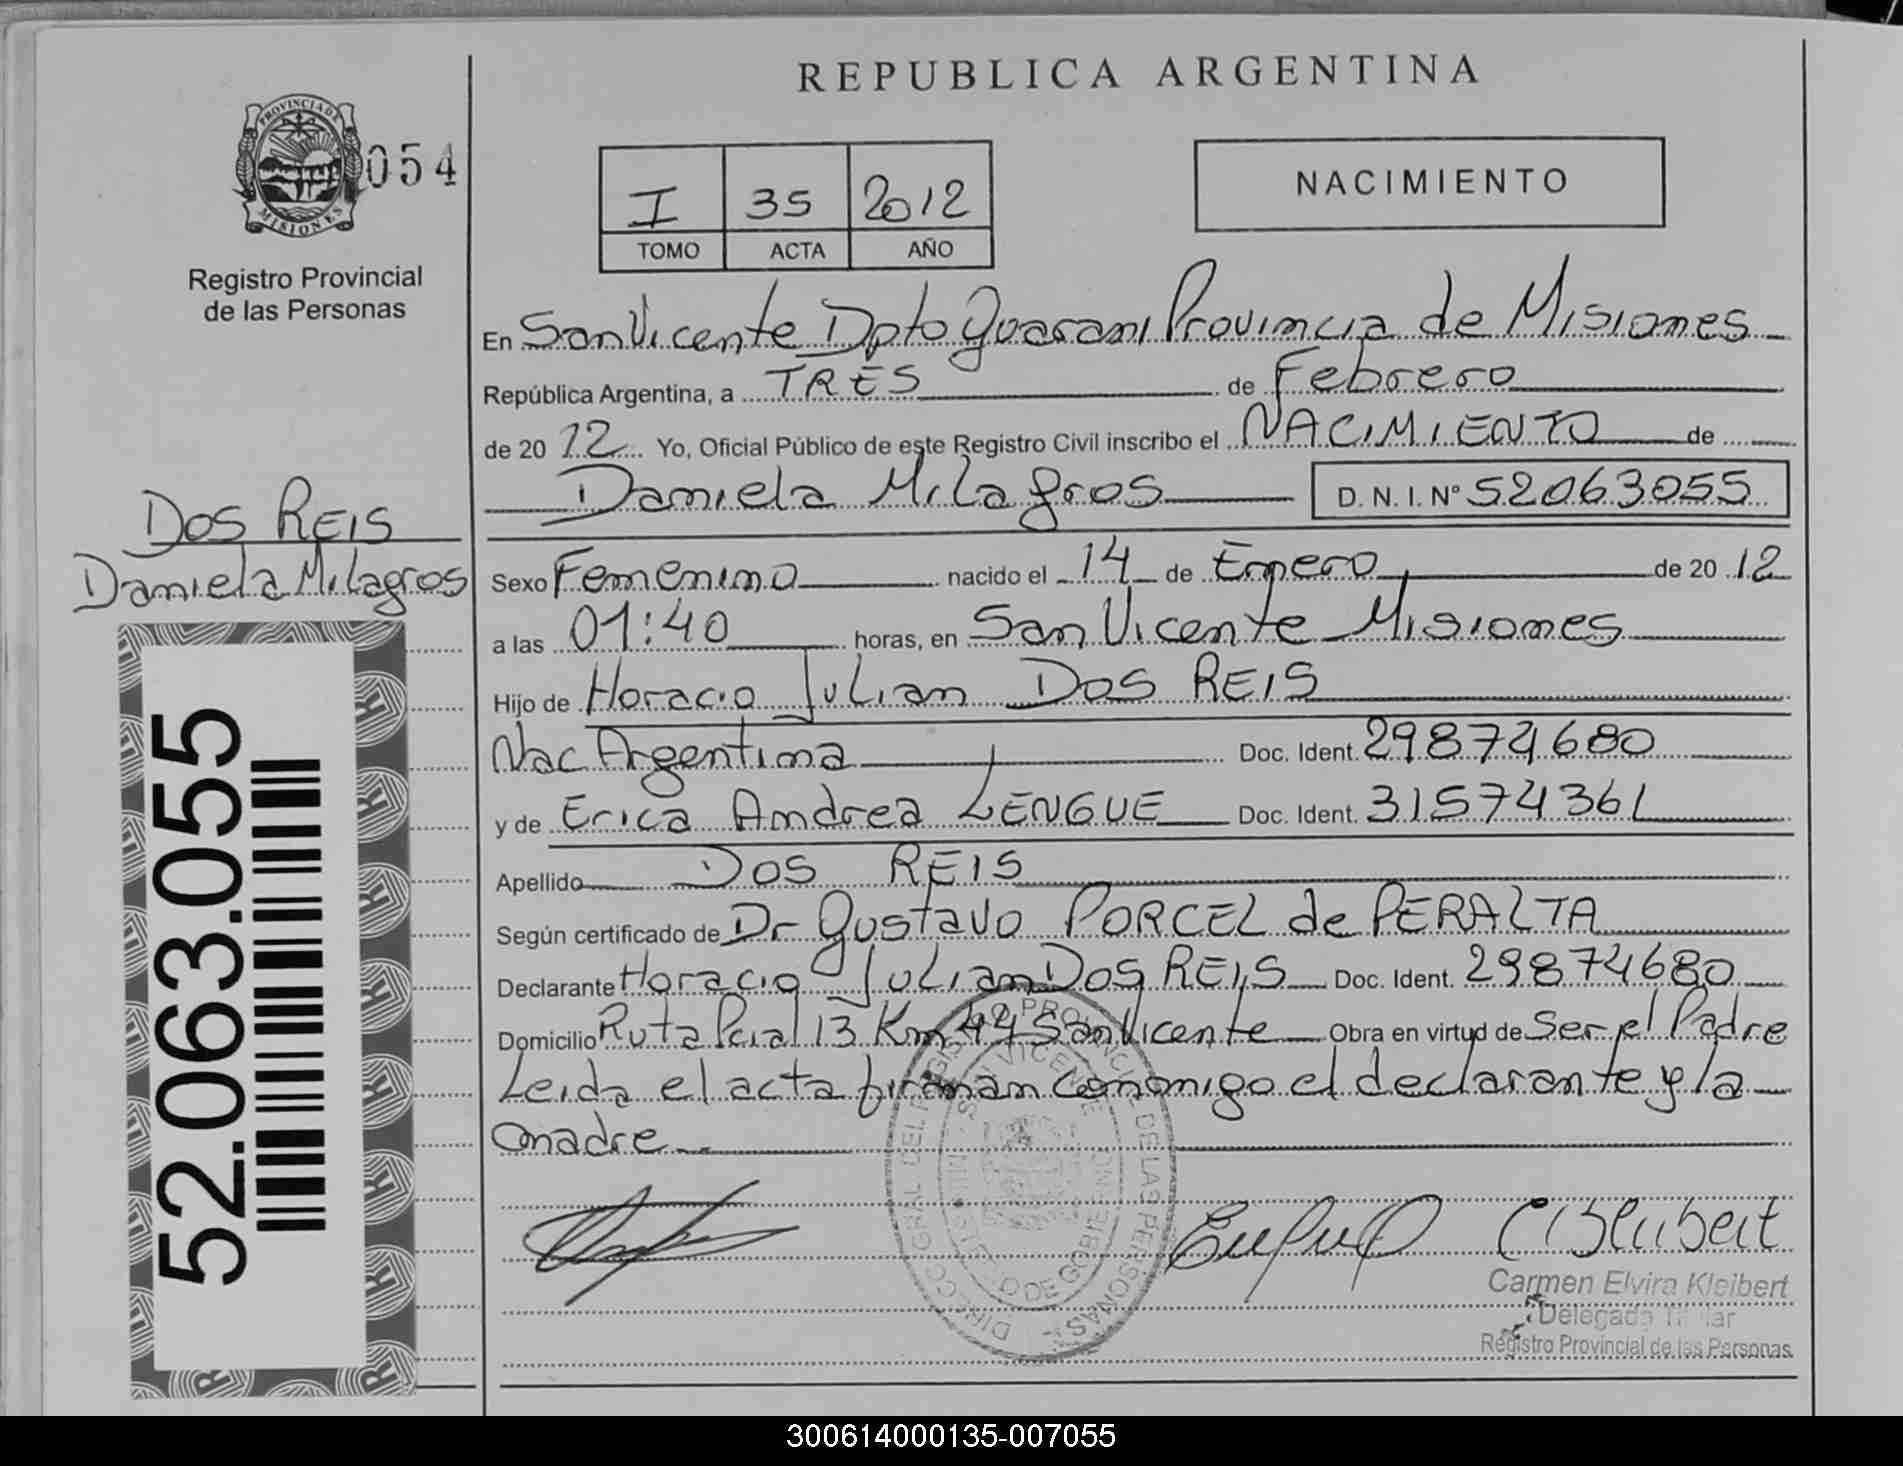 REPUBLICA ARGENTINA
PROVINCIA DE MISIONES
054
Registro Provincial
de las Personas
I 35 2012
TOMO ACTA AÑO
NACIMIENTO
En San Vicente Dpto Guarani Provincia de Misiones
República Argentina, a TRES de Febrero
de 2012 Yo, Oficial Público de este Registro Civil inscribo el NACIMIENTO de
Daniela Milagros D.N.I.Nº 52063055
DOS REIS
Daniela Milagros
Sexo Femenino nacido el 14 de Enero de 2012
a las 01:40 horas, en San Vicente Misiones
Hijo de Horacio Julian DOS REIS
Nac Argentina Doc. Ident. 29874680
y de Erica Andrea LENGUE Doc. Ident. 31574361
Apellido DOS REIS
Según certificado de Dr Gustavo PORCEL de PERALTA
Declarante Horacio Julian DOS REIS Doc. Ident. 29874680
Domicilio Ruta Pcial 13 Km 44 San Vicente Obra en virtud de Ser el Padre
Leida el acta firman conmigo el declarante y la
madre
52.063.055
Carmen Elvira Kleibert
Delegada Titular
Registro Provincial de las Personas
300614000135-007055